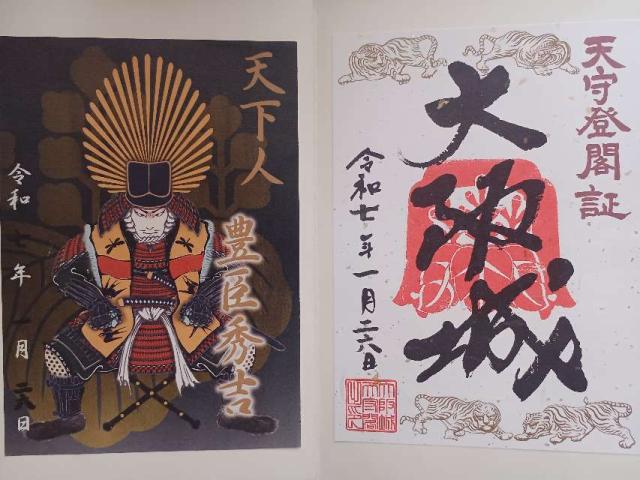 天下人
豊臣秀吉
令和七年一月二六日
天守登閣証
大阪城
令和七年一月二六日